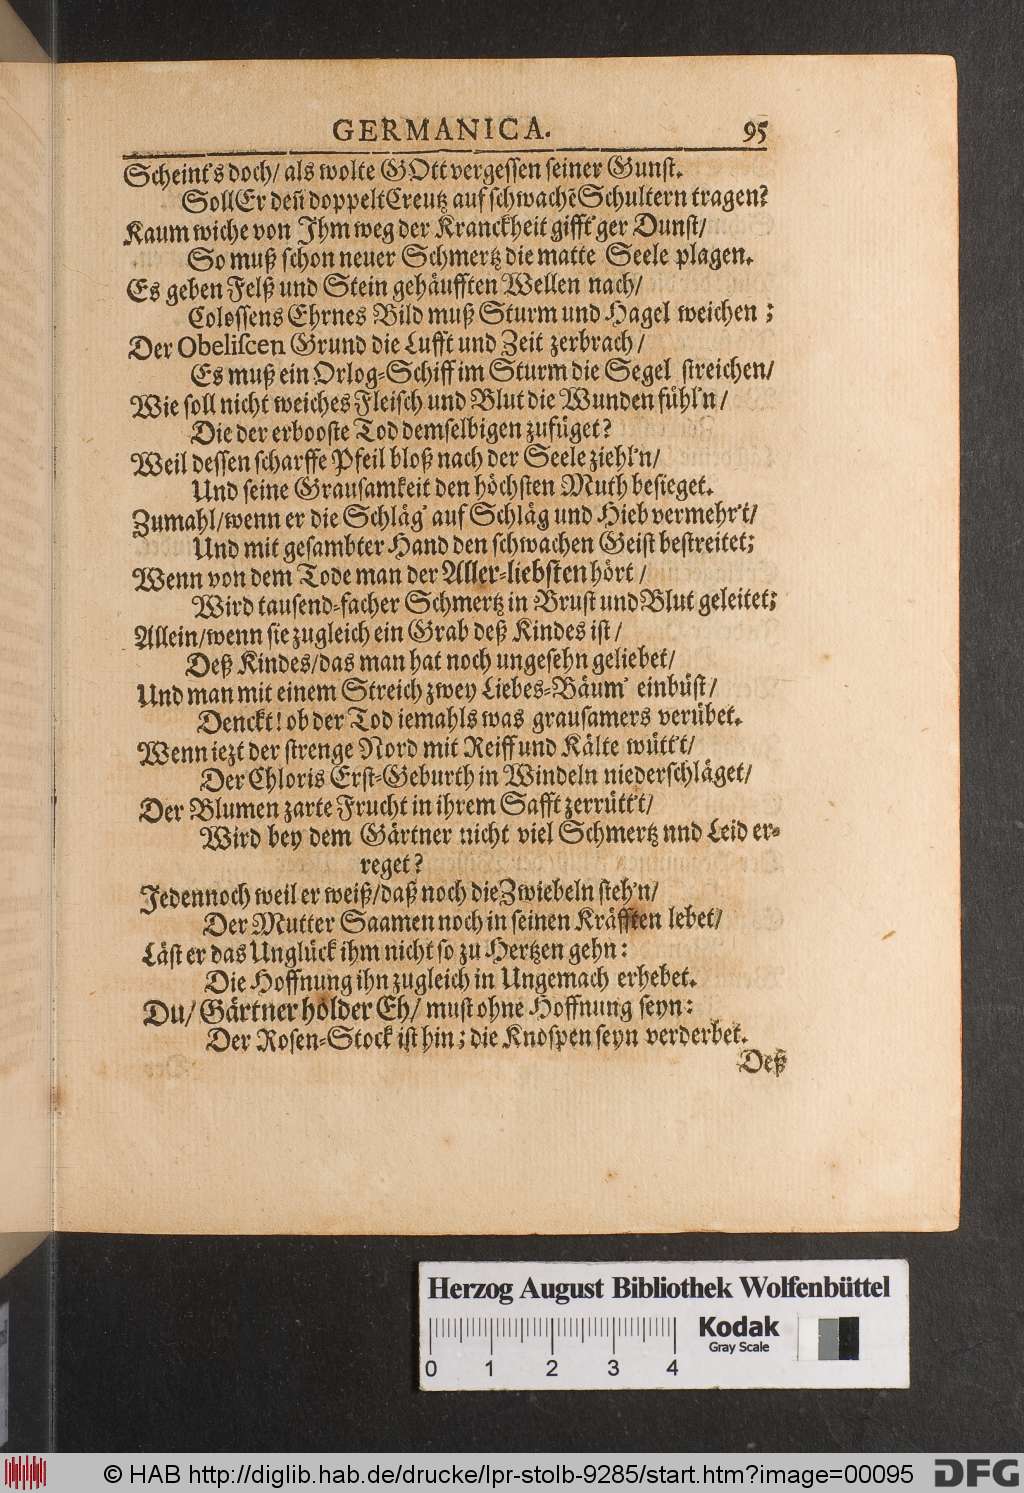 GERMANICA. 95
Scheint's doch/ als wolte GOtt vergessen seiner Gunst.
Soll Er deñ doppelt Creutz auf schwachẽ Schultern tragen?
Kaum wiche von Ihm weg der Kranckheit gifft'ger Dunst/
So muß schon neuer Schmertz die matte Seele plagen.
Es geben Felß und Stein gehäufften Wellen nach/
Colossens Ehrnes Bild muß Sturm und Hagel weichen ;
Der Obeliscen Grund die Lufft und Zeit zerbrach/
Es muß ein Orlog-Schiff im Sturm die Segel streichen/
Wie soll nicht weiches Fleisch und Blut die Wunden fühl'n/
Die der erbooste Tod demselbigen zufüget?
Weil dessen scharffe Pfeil bloß nach der Seele ziehl'n/
Und seine Grausamkeit den höchsten Muth besieget.
Zumahl/wenn er die Schläg' auf Schläg und Hieb vermehr't/
Und mit gesambter Hand den schwachen Geist bestreitet;
Wenn von dem Tode man der Aller-liebsten hört/
Wird tausend-facher Schmertz in Brust und Blut geleitet;
Allein/wenn sie zugleich ein Grab deß Kindes ist/
Deß Kindes/das man hat noch ungesehn geliebet/
Und man mit einem Streich zwey Liebes-Bäum' einbüst/
Denckt! ob der Tod iemahls was grausamers verübet.
Wenn iezt der strenge Nord mit Reiff und Kälte wütt't/
Der Chloris Erst-Geburth in Windeln niederschläget/
Der Blumen zarte Frucht in ihrem Safft zerrütt't/
Wird bey dem Gärtner nicht viel Schmertz nnd Leid er-
reget?
Jedennoch weil er weiß/daß noch die Zwiebeln steh'n/
Der Mutter Saamen noch in seinen Kräfften lebet/
Läst er das Unglück ihm nicht so zu Hertzen gehn:
Die Hoffnung ihn zugleich in Ungemach erhebet.
Du/ Gärtner holder Eh/ must ohne Hoffnung seyn:
Der Rosen-Stock ist hin; die Knospen seyn verderbet.
Deß
Herzog August Bibliothek Wolfenbüttel
Kodak
Gray Scale
0 1 2 3 4
© HAB http://diglib.hab.de/drucke/lpr-stolb-9285/start.htm?image=00095
DFG